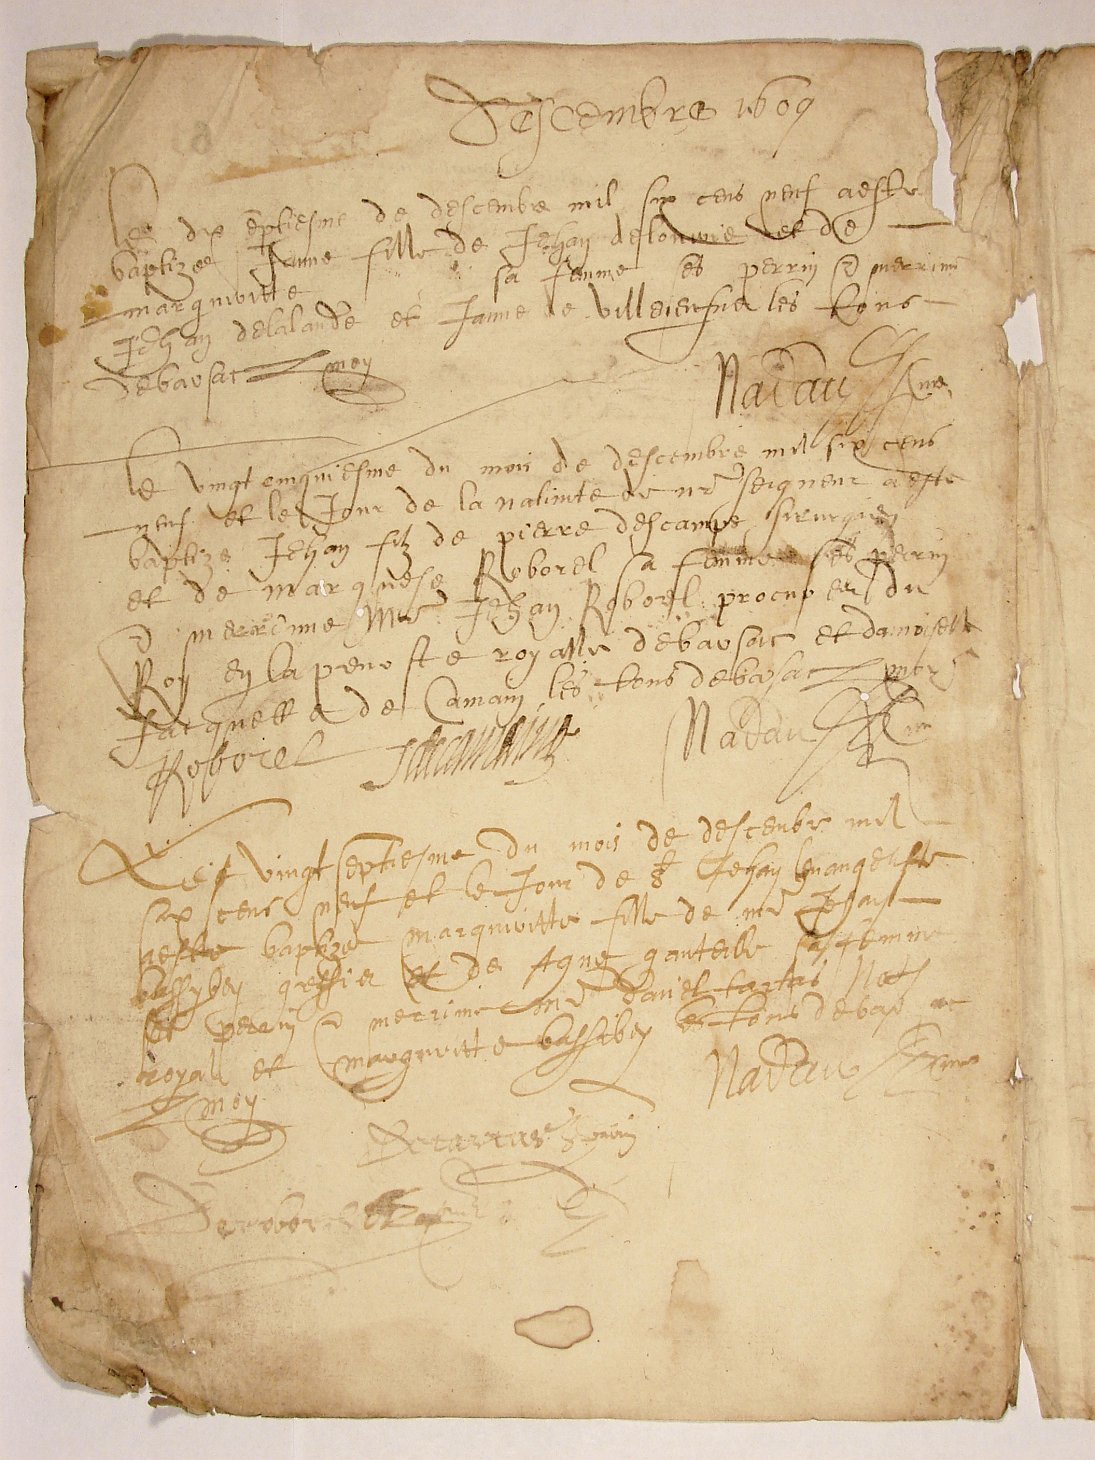 Descembre 1609
Le dix eptiesme de descembre mil six cens neuf aeste
baptizee Janne fille de Jehan delouvrie et de
marguiritte sa femme ses perrin & merrine
Jehan delalande et Janne de les tous
debarsac moy
Nadau
Le vingt cinquiesme du mois de descembre mil six cens
neuf et le Jour de la nativite de nre seigneur aeste
baptize Jehan filz de pierre descamps sirurgien
et de marquese Roborel sa femme ses perrin
& merrine Mr Jehan Roborel procureur du
Roy en la prevoste royalle debarsac et damoiselle
Jacquette de Camain les tous debarsac
Roborel Nadau
Le vingt septiesme du mois de descenbre mil
six cens neuf et le Jour de St Jehan levangeliste
aeste baptizee marguiritte fille de mr Jehan
bassybey greffier et de Agne gauteille sa femme
et perrin & merrine mr Daniel tartas Notre
royal et marguiritte bassibey les tous debarsac
moy Nadau
Detartas
Deroborel